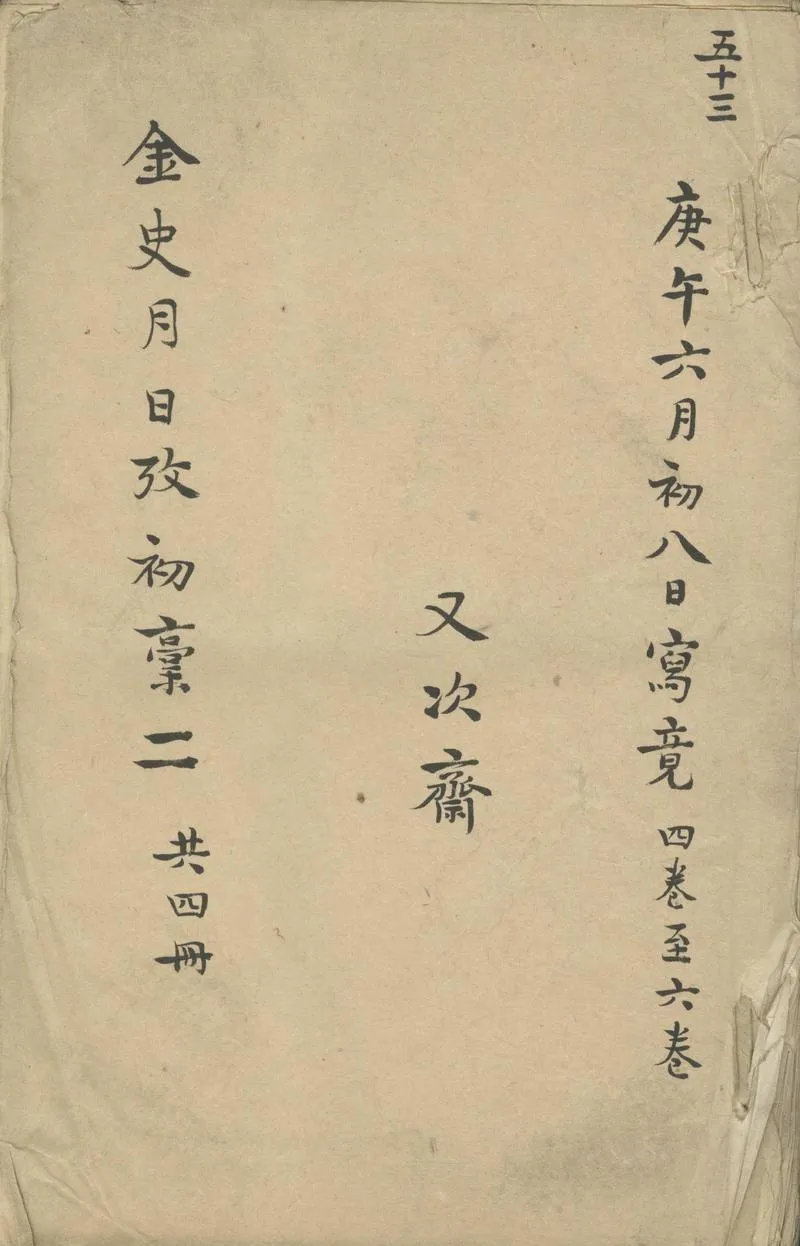 五十三
庚午六月初八日寫竟 四卷至六卷
又次齋
金史月日攷初稾二 共四冊